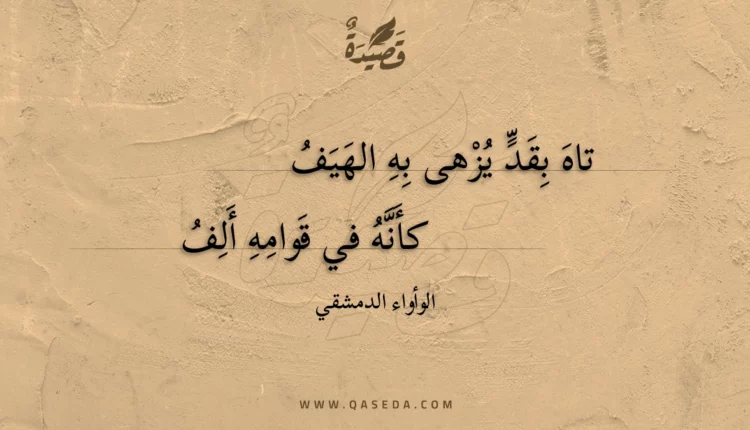 قَصِيْدَةٌ
تاهَ بِقَدٍّ يُزْهى بِهِ الهَيَفُ
كأَنَّهُ في قَوامِهِ أَلِفُ
الوأواء الدمشقي
WWW.QASEDA.COM